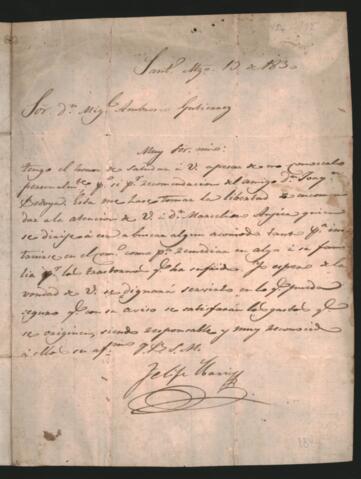 Sant.º Mzo. 13 de 183
Sor. dn. Migl. Ambrosio Gutierrez
Muy Sor. mio:
tengo el honor de saludar á V. apesar de no conocerlo
personalmte. pr. si pr. recomendacion del amigo dn. Joaqn.
Bedoya. Esta me hase tomar la libertad de recomen
dar á la atencion de V. á dn. quien
se dirije á en a buscar algun acomodo tanto pa.
en el como pa. remediar en algo á su fami
lia pr. los trastornos qe. ha sufrido. Yo espero de la
vondad de V. se dignará servirle en lo qe. pueda
seguro qe. con su aviso se satisfarán los gastos qe.
se originen, siendo responsable y muy reconocid
á ello su afmo. Q. B. S. M.
Felipe